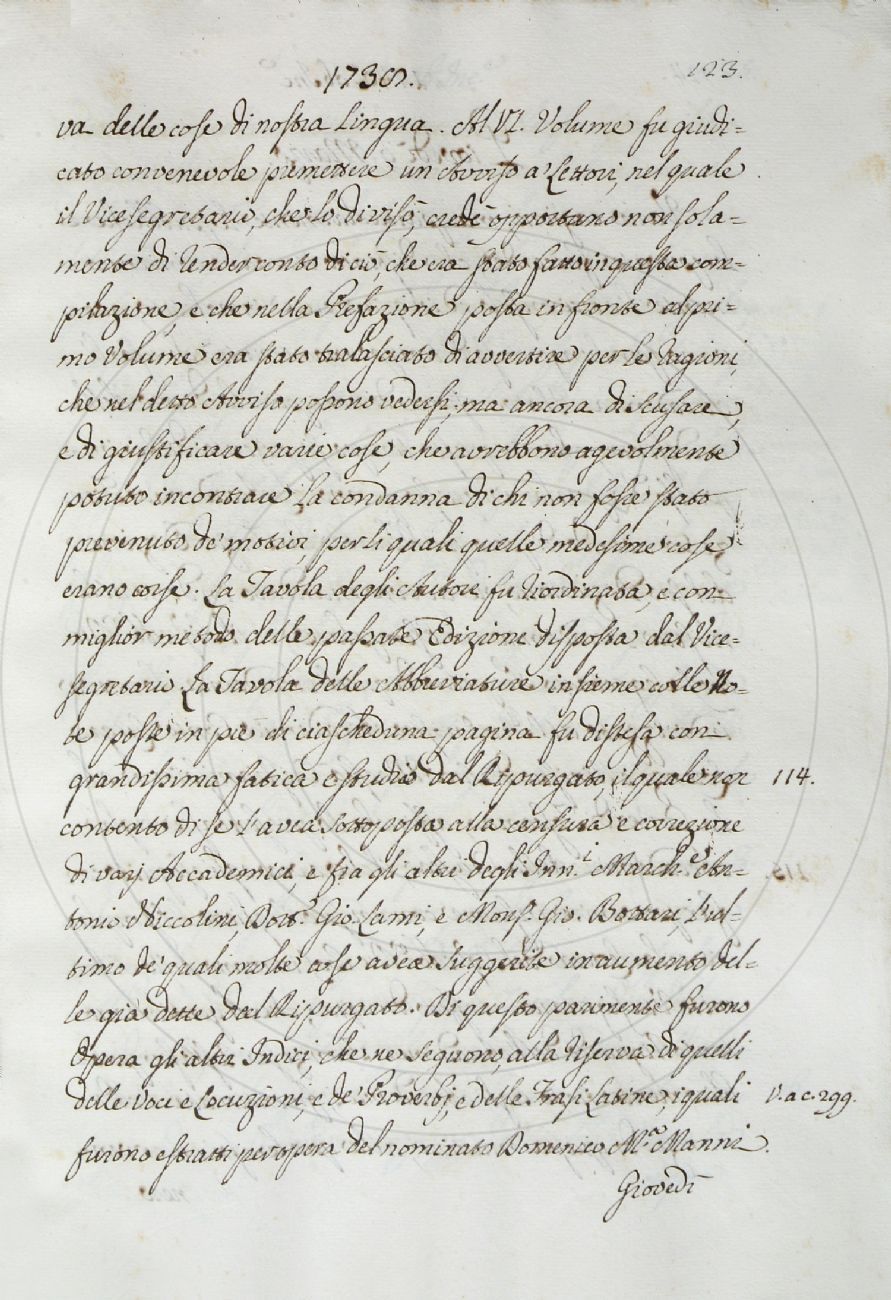 1738.
123.
va delle cose di nostra Lingua. Al VI. Volume fu giudi=
cato convenevole premettere un Avviso a' Lettori, nel quale
il Vicesegretario, che lo divisò, credè opportuno non sola=
mente di render conto di ciò, che era stato fatto in questa com=
pilazione, e che nella Prefazione posta in fronte al pri=
mo Volume era stato tralasciato di avvertire per le ragioni,
che nel detto Avviso possono vedersi, ma ancora di scusare,
e di giustificare varie cose, che avrebbono agevolmente
potuto incontrare la condanna di chi non fosse stato
prevenuto de' motivi, per li quali quelle medesime cose
erano corse. La Tavola degli Autori fu riordinata, e con
miglior metodo delle passate Edizione disposta dal Vice=
segretario La Tavola delle Abbreviature insieme colle No=
te poste in piè di ciascheduna pagina fu distesa con
grandissima fatica e studio dal Ripurgato, il quale non
114.
contento di se l'avea sottoposta alla censura e correzione
di varj Accademici, e fra gli altri degli Inn.i March.e An=
tonio Niccolini, Dott.r Gio. Lami, e Mons.r Gio. Bottari, l'ul=
timo de' quali molte cose avea suggerite in aumento del=
le già dette dal Ripurgato. Di questo parimente furono
opera gli altri Indici, che ne seguono, alla riserva di quelli
delle Voci e Locuzioni, e de' Proverbj, e delle Frasi Latine, i quali
V. a c. 299.
furono estratti per opera del nominato Domenico M.a Manni.
Giovedì